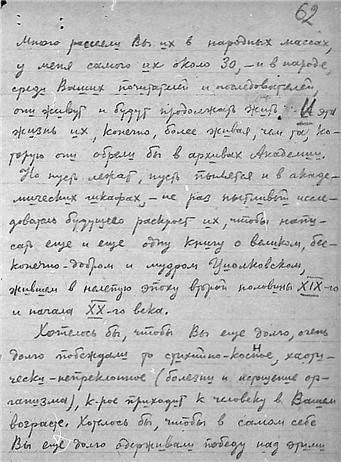 62
Много рассеяли Вы их в народных массах,
у меня самого их около 30, – и в народе,
среди Ваших почитателей и последователей,
они живут и будут продолжать жить. И эта
жизнь их, конечно, более живая, чем та, ко-
торую они обрели бы в архивах Академии.
Но пусть лежат, пусть пылятся и в акаде-
мических шкафах, – не раз пытливый иссле-
дователь будущего раскроет их, чтобы напи-
сать еще и еще одну книгу о великом, бес-
конечно-добром и мудром Циолковском,
жившем в нелепую эпоху второй половины XIX-го
и начала XX-го века.
Хотелось бы, чтобы Вы еще долго, очень
долго побеждали то стихийно-косное, хаоти-
чески-непреклонное (болезни и ор-
ганизма), к-рое приходит к человеку в Вашем
возрасте. Хотелось бы, чтобы в самом себе
Вы еще долго одерживали победу над этими